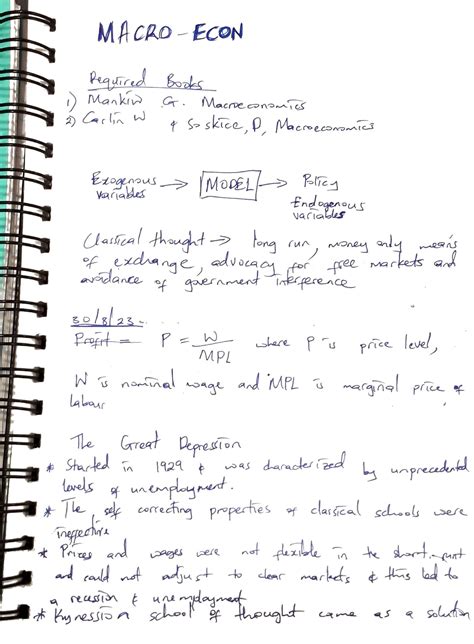 MACRO-ECON
Required Books
1) Mankiw G. Macroeconomics
2) Carlin W & Soskice, D, Macroeconomics
Exogenous variables → MODEL → Policy
Endogenous variables
Classical thought → long run, money only means
of exchange, advocacy for free markets and
avoidance of government interference
30/8/23
Profit = P = W/MPL where P is price level,
W is nominal wage and MPL is marginal price of
labour
The Great Depression
* Started in 1929 & was characterized by unprecedented
levels of unemployment.
* The self correcting properties of classical schools were
ineffective
* Prices and wages were not flexible in the short-run
and could not adjust to clear markets & this led to
a recession & unemployment
* Kynession school of thought came as a solution